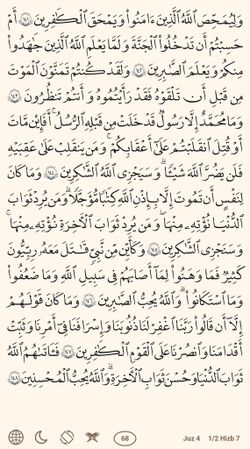 وَلِيُمَحِّصَ ٱللَّهُ ٱلَّذِينَ ءَامَنُوا۟ وَيَمْحَقَ ٱلْكَٰفِرِينَ ١٤١ أَمْ
حَسِبْتُمْ أَن تَدْخُلُوا۟ ٱلْجَنَّةَ وَلَمَّا يَعْلَمِ ٱللَّهُ ٱلَّذِينَ جَٰهَدُوا۟
مِنكُمْ وَيَعْلَمَ ٱلصَّٰبِرِينَ ١٤٢ وَلَقَدْ كُنتُمْ تَمَنَّوْنَ ٱلْمَوْتَ
مِن قَبْلِ أَن تَلْقَوْهُ فَقَدْ رَأَيْتُمُوهُ وَأَنتُمْ تَنظُرُونَ ١٤٣
وَمَا مُحَمَّدٌ إِلَّا رَسُولٌ قَدْ خَلَتْ مِن قَبْلِهِ ٱلرُّسُلُ ۚ أَفَإِي۟ن مَّاتَ
أَوْ قُتِلَ ٱنقَلَبْتُمْ عَلَىٰٓ أَعْقَٰبِكُمْ ۚ وَمَن يَنقَلِبْ عَلَىٰ عَقِبَيْهِ
فَلَن يَضُرَّ ٱللَّهَ شَيْـًٔا ۗ وَسَيَجْزِى ٱللَّهُ ٱلشَّٰكِرِينَ ١٤٤ وَمَا كَانَ
لِنَفْسٍ أَن تَمُوتَ إِلَّا بِإِذْنِ ٱللَّهِ كِتَٰبًا مُّؤَجَّلًا ۗ وَمَن يُرِدْ ثَوَابَ
ٱلدُّنْيَا نُؤْتِهِۦ مِنْهَا وَمَن يُرِدْ ثَوَابَ ٱلْـَٔاخِرَةِ نُؤْتِهِۦ مِنْهَا ۚ
وَسَنَجْزِى ٱلشَّٰكِرِينَ ١٤٥ وَكَأَيِّن مِّن نَّبِىٍّ قَٰتَلَ مَعَهُۥ رِبِّيُّونَ
كَثِيرٌ فَمَا وَهَنُوا۟ لِمَآ أَصَابَهُمْ فِى سَبِيلِ ٱللَّهِ وَمَا ضَعُفُوا۟
وَمَا ٱسْتَكَانُوا۟ ۗ وَٱللَّهُ يُحِبُّ ٱلصَّٰبِرِينَ ١٤٦ وَمَا كَانَ قَوْلَهُمْ
إِلَّآ أَن قَالُوا۟ رَبَّنَا ٱغْفِرْ لَنَا ذُنُوبَنَا وَإِسْرَافَنَا فِىٓ أَمْرِنَا وَثَبِّتْ
أَقْدَامَنَا وَٱنصُرْنَا عَلَى ٱلْقَوْمِ ٱلْكَٰفِرِينَ ١٤٧ فَـَٔاتَىٰهُمُ ٱللَّهُ
ثَوَابَ ٱلدُّنْيَا وَحُسْنَ ثَوَابِ ٱلْـَٔاخِرَةِ ۗ وَٱللَّهُ يُحِبُّ ٱلْمُحْسِنِينَ ١٤٨
68 Juz 4 1/2 Hizb 7